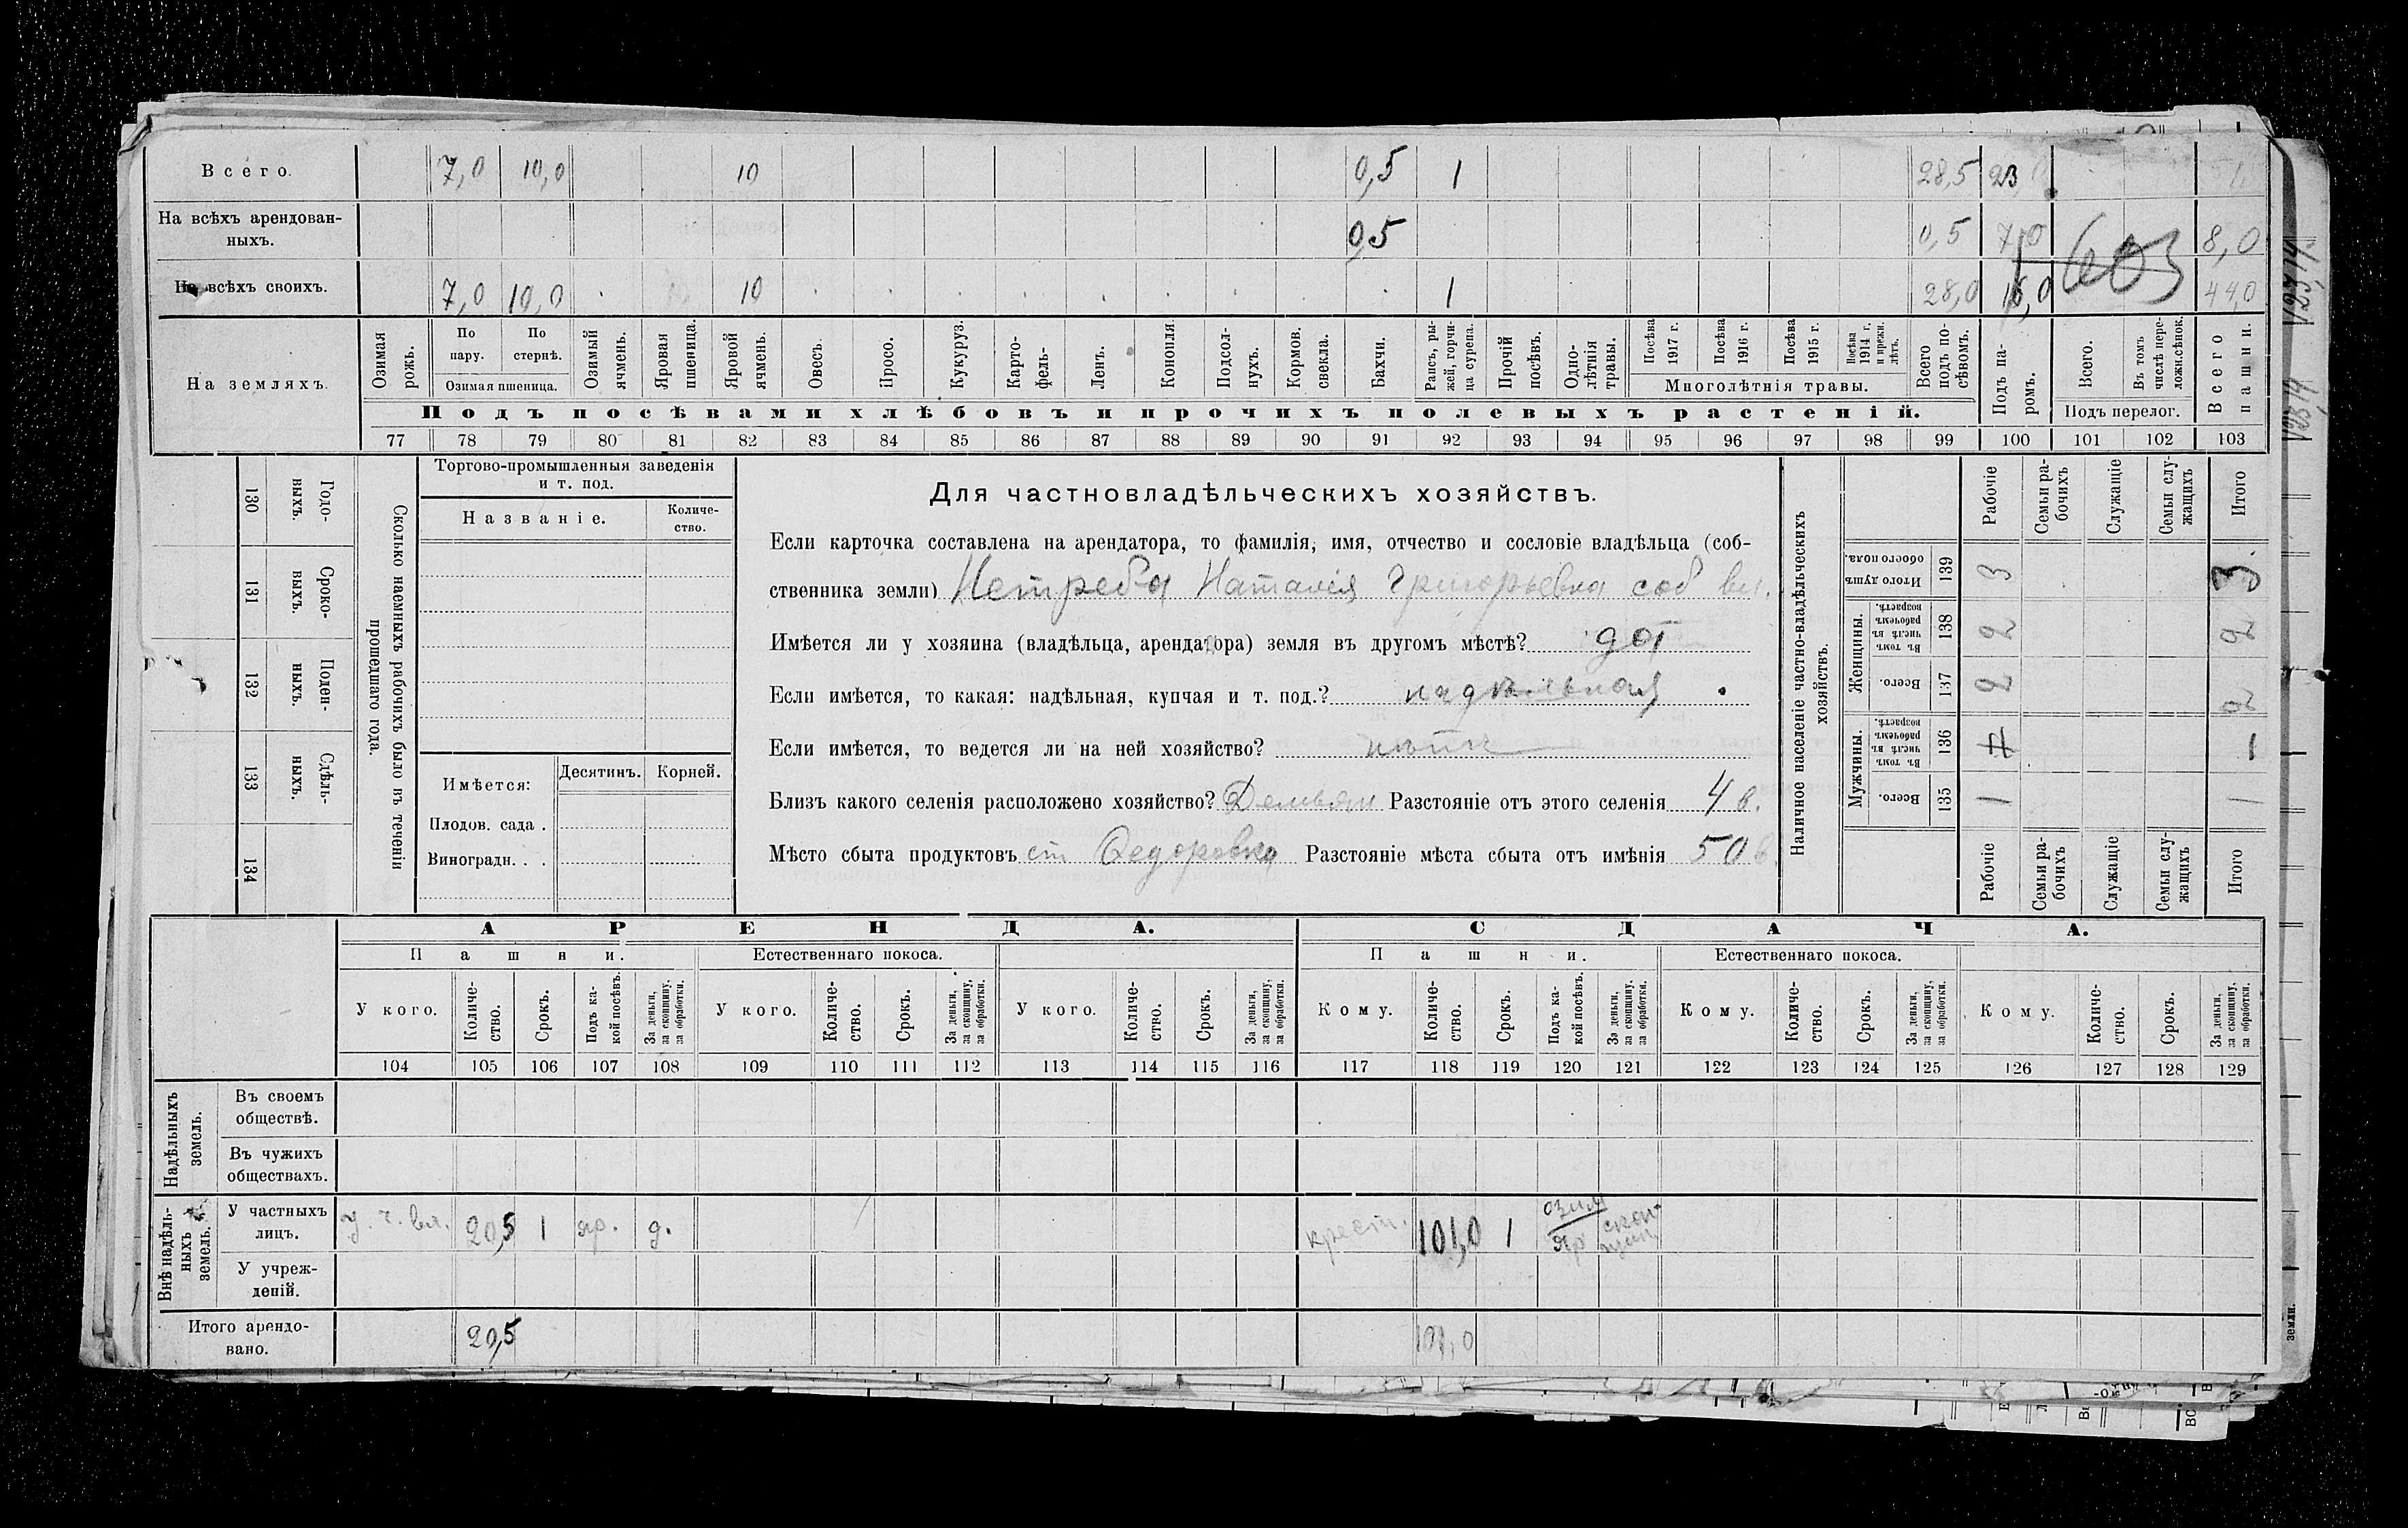 Всего. 7,0 10,0 10 0,5 1 28,5 23
На всѣхъ арендован-
ныхъ. 0,5 0,5 7,0 8,0
На всѣхъ своихъ. 7,0 10,0 10 1 28,0 16,0 44,0
603
На земляхъ.
Озимая рожь.
По пару.
По стернѣ.
Озимая пшеница.
Озимый ячмень.
Яровая пшеница.
Яровой ячмень.
Овесъ.
Просо.
Кукуруз.
Карто-
фель-
Ленъ.
Конопля.
Подсол-
нухъ.
Кормов.
свекла.
Бахчи.
Рапсъ, ры-
жей, горчи-
ца сурепа.
Прочій
посѣвъ.
Одно-
лѣтнія
травы.
Посѣва 1917 г.
Посѣва 1916 г.
Посѣва 1915 г.
Посѣва 1914 г. и прежн. лѣтъ.
Многолѣтнія травы.
Всего подъ по-
сѣвомъ.
Подъ па-
ромъ.
Всего.
Въ томъ
числѣ пере-
ложн.сѣнок.
Подъ перелог.
Всего пашни.
Подъ посѣвами хлѣбовъ и прочихъ полевыхъ растеній.
77 78 79 80 81 82 83 84 85 86 87 88 89 90 91 92 93 94 95 96 97 98 99 100 101 102 103
Сколько наемныхъ рабочихъ было въ теченіи
прошедшаго года.
Годо-
выхъ.
130
Сроко-
выхъ.
131
Поден-
ныхъ.
132
Сдѣль-
ныхъ.
133
134
Торгово-промышленныя заведенія
и т. под.
Названіе.
Количе-
ство.
Имѣется: Десятинъ. Корней.
Плодов. сада .
Виноградн. . .
Для частновладѣльческихъ хозяйствъ.
Если карточка составлена на арендатора, то фамилія, имя, отчество и сословіе владѣльца (соб-
ственника земли) Нетреба Наталія Григорьевна соб вл.
Имѣется ли у хозяина (владѣльца, арендатора) земля въ другомъ мѣстѣ?
Если имѣется, то какая: надѣльная, купчая и т. под.? надѣльная
Если имѣется, то ведется ли на ней хозяйство?
Близъ какого селенія расположено хозяйство? Разстояніе отъ этого селенія 4 в.
Мѣсто сбыта продуктовъ ст Федоровка Разстояніе мѣста сбыта отъ имѣнія 50 в.
Наличное населеніе частно-владѣльческихъ
хозяйствъ.
Рабочіе
Семьи ра-
бочихъ
Служащіе
Семьи слу-
жащихъ
Итого
Итого душъ
обоего пола. 139 3 3.
Женщины.
Въ томъ числѣ въ рабочемъ возрастѣ. 138 2 2
Всего. 137 2 2
Мужчины.
Въ томъ числѣ въ рабочемъ возрастѣ. 136 1
Всего. 135 1 1
Рабочіе
Семьи ра-
бочихъ
Служащіе
Семьи слу-
жащихъ
Итого
АРЕНДА. СДАЧА.
Пашни. Естественнаго покоса. Пашни. Естественнаго покоса.
У кого.
Количе-
ство.
Срокъ.
Подъ ка-
кой посѣвъ.
За деньги,
за скопщину,
за обработки.
У кого.
Количе-
ство.
Срокъ.
За деньги,
за скопщину,
за обработки.
У кого.
Количе-
ство.
Срокъ.
За деньги,
за скопщину,
за обработки.
Кому.
Количе-
ство.
Срокъ.
Подъ ка-
кой посѣвъ.
За деньги,
за скопщину,
за обработки.
Кому.
Количе-
ство.
Срокъ.
За деньги,
за скопщину,
за обработки.
Кому.
Количе-
ство.
Срокъ.
За деньги,
за скопщину,
за обработки.
104 105 106 107 108 109 110 111 112 113 114 115 116 117 118 119 120 121 122 123 124 125 126 127 128 129
Надѣльныхъ
земель.
Въ своемъ
обществѣ.
Въ чужихъ
обществахъ.
Внѣ надѣль-
ныхъ
земель.
У частныхъ
лицъ. у ч. вл. 20,5 1 яр. д. крест. 101,0 1 озим яр скоп
У учреж-
деній.
Итого арендо-
вано. 20,5 101,0
земли.